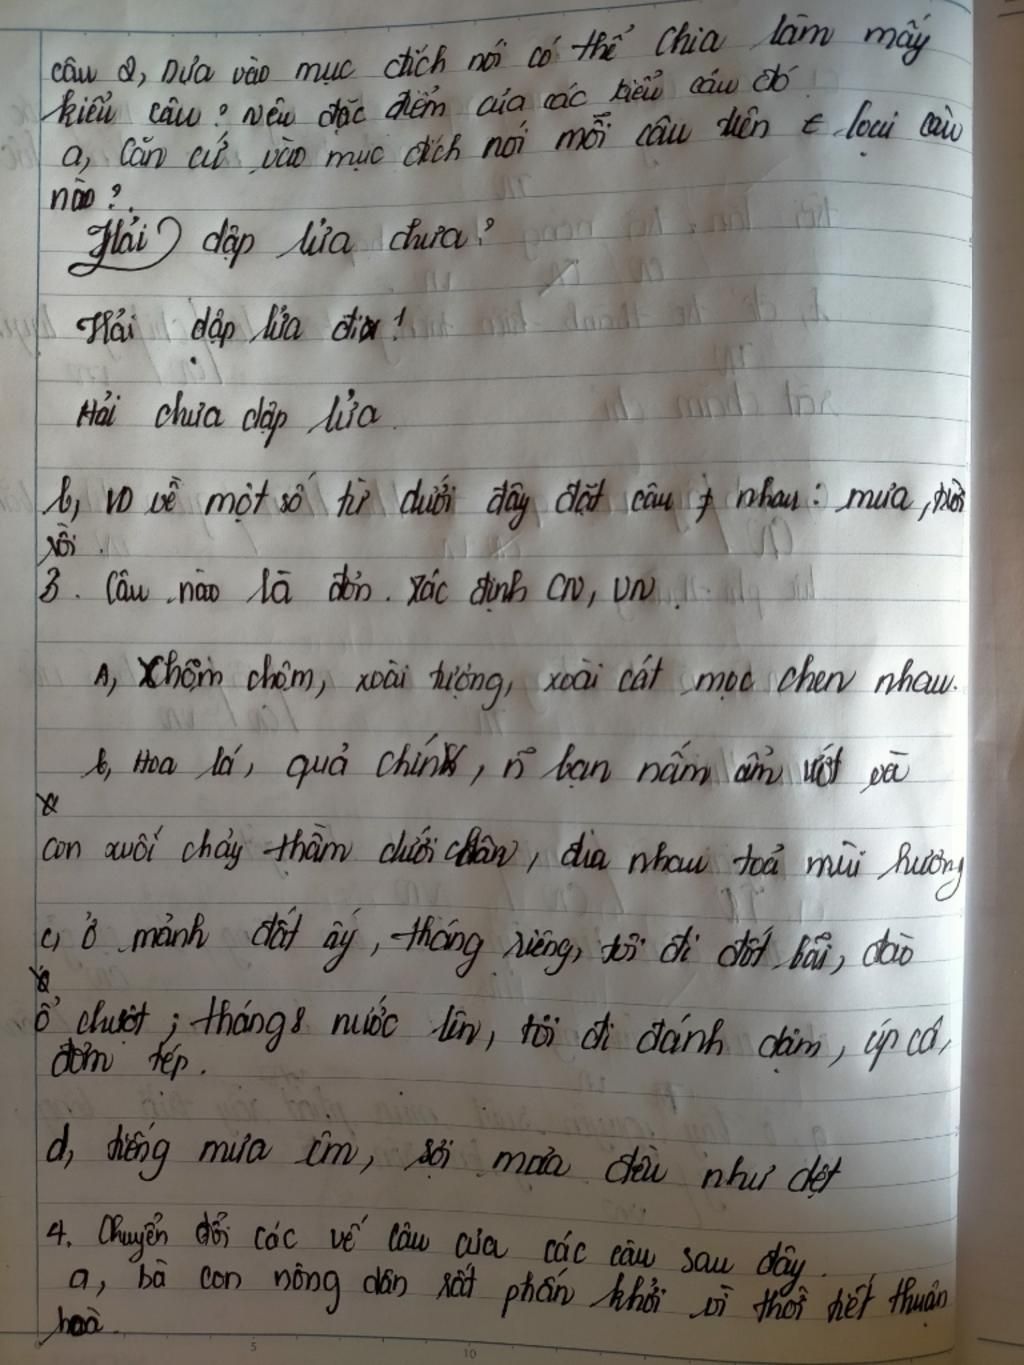 câu 2, Dựa vào mục đích nói có thể chia làm mấy
kiểu câu? Nêu đặc điểm của các kiểu câu đó
a, Căn cứ vào mục đích nói mỗi câu trên E loại câu
nào?
Hải dập lửa chưa?
Hải dập lửa đi!
Hải chưa dập lửa.
b, VD về một số từ dưới đây đặt câu ≠ nhau: mưa, trời
rồi.
3. Câu nào là đơn. Xác định CN, VN.
A, Chôm chôm, xoài tượng, xoài cát mọc chen nhau.
b, Hoa lá, quả chín, n~ bạn nấm ẩm ướt và
con xuối chảy thầm dưới chân, đua nhau toả mùi hương
c, ở mảnh đất ấy, tháng riêng, tôi đi đốt bãi, đào
ổ chuột; tháng 8 nước lên, tôi đi đánh dậm, úp cá,
đơm tép.
d, tiếng mưa êm, sợi mưa đều như dệt
4. Chuyển đổi các vế câu của các câu sau đây.
a, bà con nông dân rất phấn khởi vì thời tiết thuận
hoà.